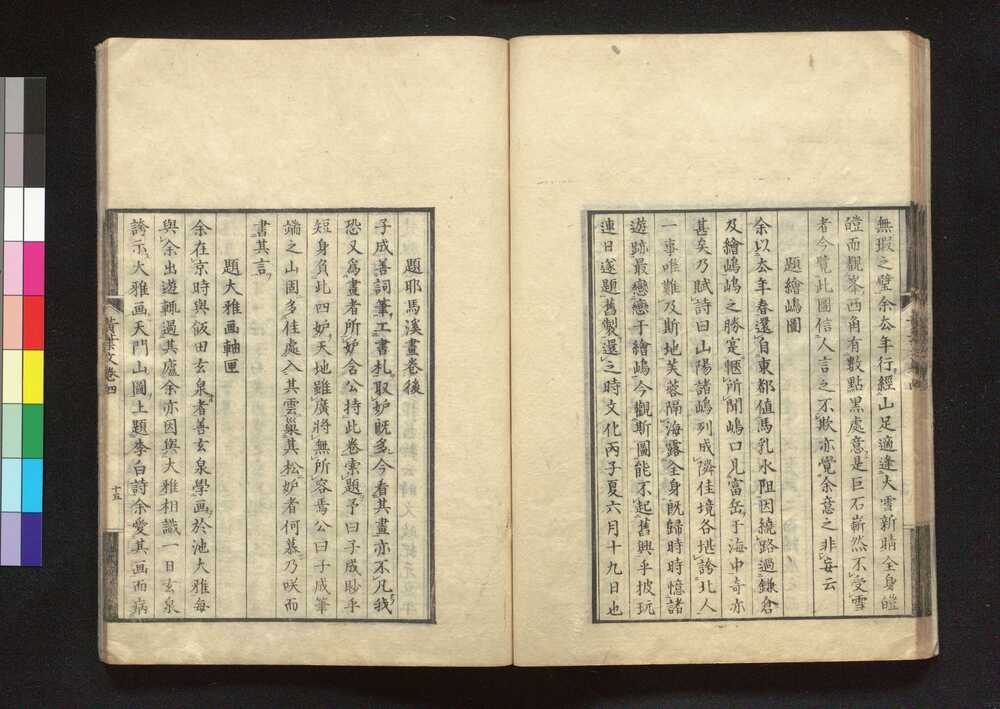 無瑕之璧余厺年行經山足適逢大雪新晴全身皚
皚而觀峯西角有數點黒處意是巨石嶄然不受雪
者今覽此圖信人言之不欺亦覺余意之非妄云
題繪嶋圖
余以厺年春還自東都値馬乳水阻因繞路過鎌倉
及繪嶋嶋之勝寔愜所聞嶋口見富岳于海中奇亦
甚矣乃賦詩曰山陽諸嶋列成隣佳境各堪誇北人
一事唯難及斯地芙蓉隔海露全身既歸時時憶諸
遊跡最戀戀于繪嶋今觀斯圖能不起舊興乎披玩
連日遂題舊製還之時文化丙子夏六月十九日也
題耶馬溪畫卷後
子成善詞筆工書札取妒既多今看其畫亦不凡我
恐又爲畫者所妒含公持此卷索題予曰子成眇乎
短身負此四妒天地雖廣將無所容焉公曰子成筆
端之山固多佳處入其雲巢其松妒者何慕乃咲而
書其言
題大雅画軸匣
余在京時與飯田玄泉者善玄泉學画於池大雅每
與余出遊輒過其廬余亦因與大雅相識一日玄泉
誇示大雅画天門山圖上題李白詩余愛其画而病
黄葉文卷四
十五